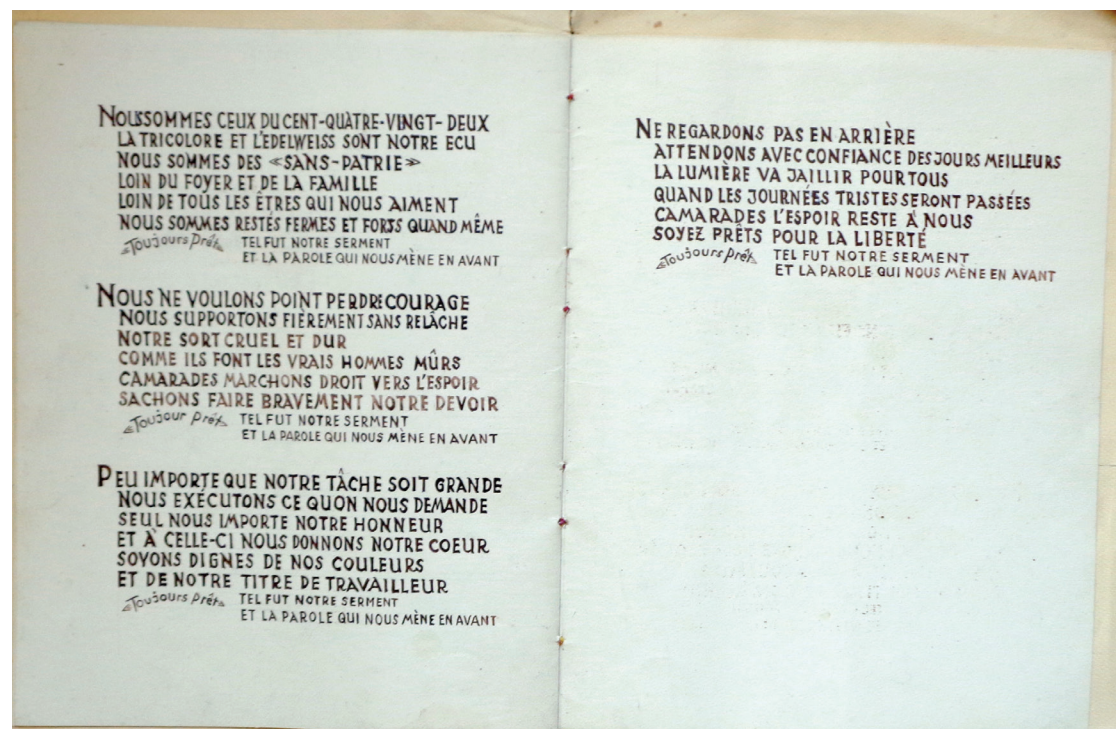 NOUS SOMMES CEUX DU CENT-QUATRE-VINGT-DEUX
LA TRICOLORE ET L'EDELWEISS SONT NOTRE ECU
NOUS SOMMES DES «SANS-PATRIE»
LOIN DU FOYER ET DE LA FAMILLE
LOIN DE TOUS LES ÊTRES QUI NOUS AIMENT
NOUS SOMMES RESTÉS FERMES ET FORTS QUAND MÊME
Toujours Prêt TEL FUT NOTRE SERMENT
ET LA PAROLE QUI NOUS MÈNE EN AVANT
NOUS NE VOULONS POINT PERDRE COURAGE
NOUS SUPPORTONS FIÈREMENT SANS RELÂCHE
NOTRE SORT CRUEL ET DUR
COMME ILS FONT LES VRAIS HOMMES MÛRS
CAMARADES MARCHONS DROIT VERS L'ESPOIR
SACHONS FAIRE BRAVEMENT NOTRE DEVOIR
Toujour Prêt TEL FUT NOTRE SERMENT
ET LA PAROLE QUI NOUS MÈNE EN AVANT
PEU IMPORTE QUE NOTRE TÂCHE SOIT GRANDE
NOUS EXÉCUTONS CE QUON NOUS DEMANDE
SEUL NOUS IMPORTE NOTRE HONNEUR
ET À CELLE-CI NOUS DONNONS NOTRE COEUR
SOYONS DIGNES DE NOS COULEURS
ET DE NOTRE TITRE DE TRAVAILLEUR
Toujours Prêt TEL FUT NOTRE SERMENT
ET LA PAROLE QUI NOUS MÈNE EN AVANT
NE REGARDONS PAS EN ARRIÈRE
ATTENDONS AVEC CONFIANCE DES JOURS MEILLEURS
LA LUMIÈRE VA JAILLIR POUR TOUS
QUAND LES JOURNÉES TRISTES SERONT PASSÉES
CAMARADES L'ESPOIR RESTE À NOUS
SOYEZ PRÊTS POUR LA LIBERTÉ
Toujours Prêt TEL FUT NOTRE SERMENT
ET LA PAROLE QUI NOUS MÈNE EN AVANT